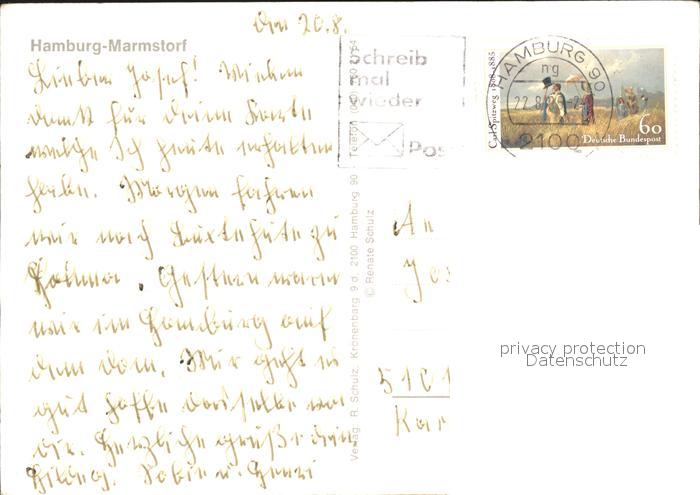 Den 20.8.
Hamburg-Marmstorf
Lieber Josef! Vielen
dank für deine Karte
welche ich heute erhalten
habe. Morgen fahren
wir nach Buxtehute zu
Gestern waren
wir im Hamburg auf
dem dom. Mir geht es
gut hoffe dasselbe von
dir. Herzliche grüße dein
u. Henri
Schreib
mal
wieder
Pos
HAMBURG 90
ng
22.8
2100
Carl Spitzweg 1808-1885
60
Deutsche Bundespost
Verlag R. Schulz, Krönenbarg 9 d, 2100 Hamburg 90
© Renate Schulz
An
Jos
5101
Kar
privacy protection
Datenschutz